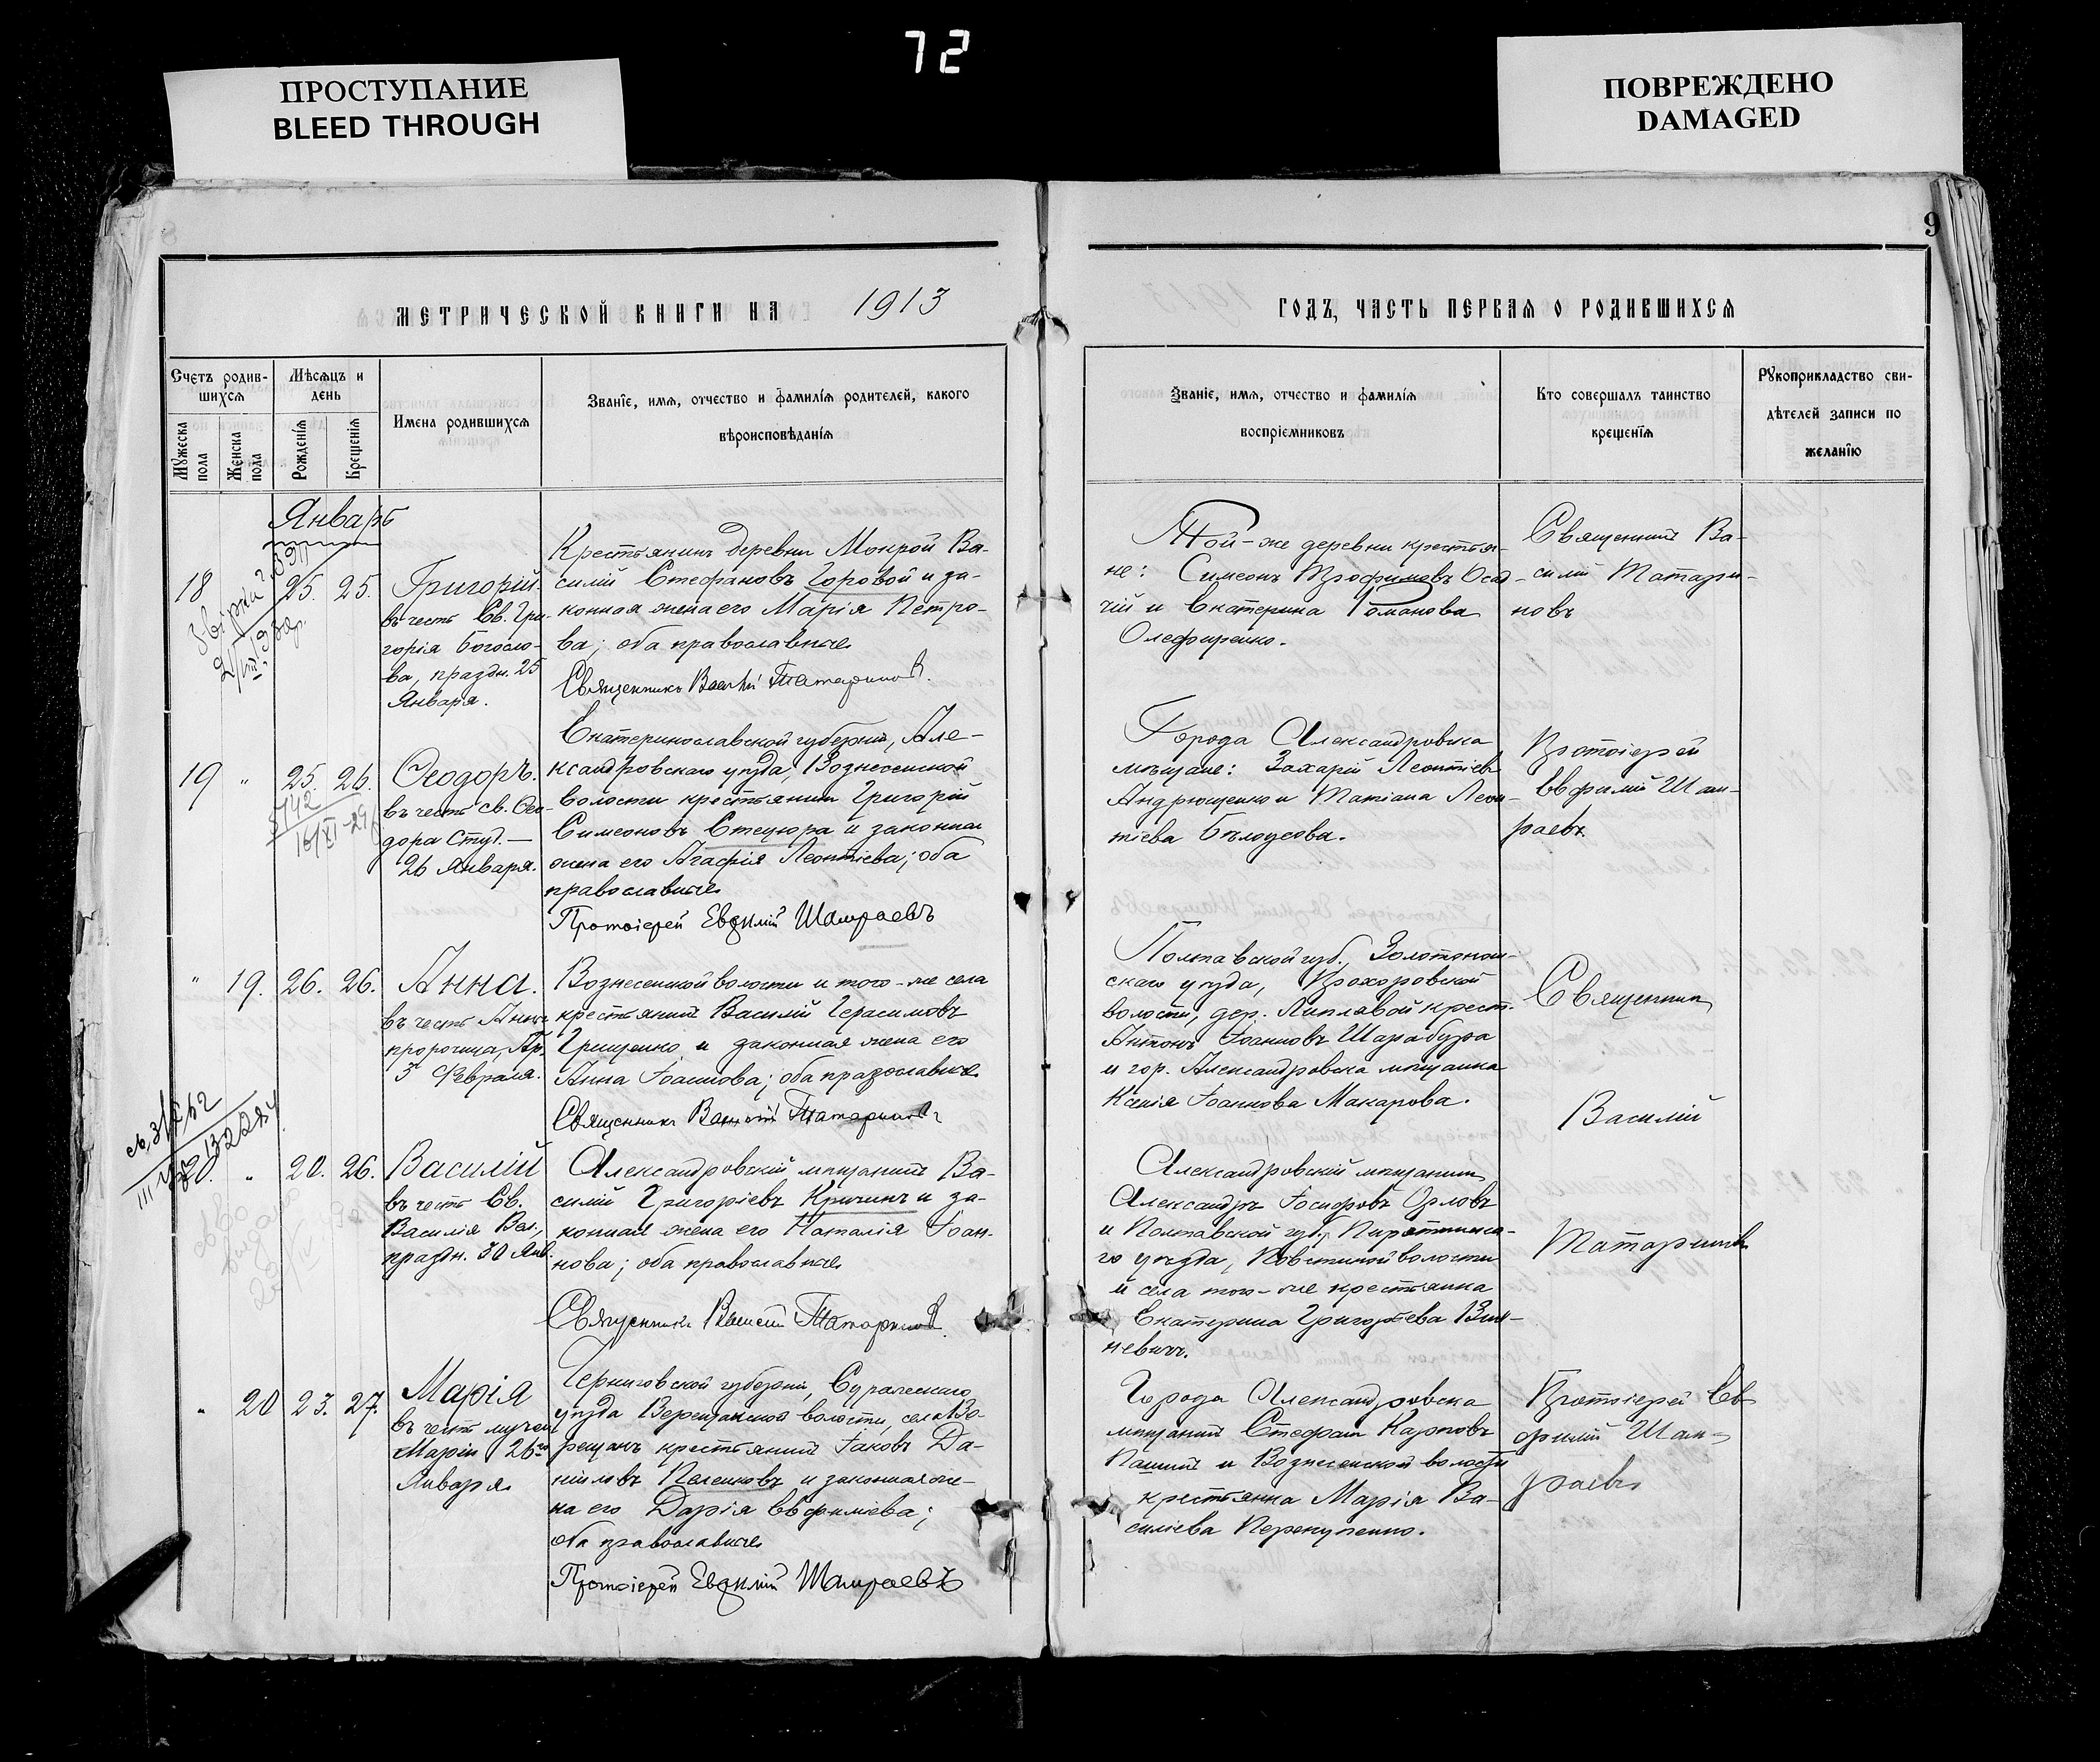 72
ПРОСТУПАНИЕ
BLEED THROUGH
ПОВРЕЖДЕНО
DAMAGED
9
МЕТРИЧЕСКОЙ КНИГИ НА 1913
ГОДЪ, ЧАСТЬ ПЕРВАЯ О РОДИВШИХСЯ
Счетъ родив-
шихся
Мужеска пола
Женска пола
Мѣсяцъ и
день
Рожденія
Крещенія
Имена родившихся
Званіе, имя, отчество и фамилія родителей, какого
вѣроисповѣданія
Званіе, имя, отчество и фамилія
воспріемниковъ
Кто совершалъ таинство
крещенія
Рукоприкладство сви-
дѣтелей записи по
желанію
Январь
18 25. 25.
Григорій
въ честь Св. Гри-
горія Богосло-
ва, праздн. 25
Января.
Крестьянинъ деревни Мокрой Ва-
силій Стефановъ Горовой и за-
конная жена его Марія Петро-
ва; оба православные
Священникъ Василій Татариновъ.
Той-же деревни крестья-
не: Симеонъ Трофимовъ Осад-
чій и Екатерина Романова
Олефиренко.
Священникъ Ва-
силій Татари-
новъ
19 " 25. 26.
5742
16/XI-29
Ѳеодоръ.
въ честь св. Ѳео-
дора Студ.—
26 Января.
Екатеринославской губерніи, Але-
ксандровскаго уѣзда, Вознесенской
волости крестьянинъ Григорій
Симеоновъ Стецюра и законная
жена его Агафія Леонтіева; оба
православные
Протоіерей Евфимій Шамраевъ
Города Александровска
мѣщане: Захарій Леонтіевъ
Андрющенко и Татіана Леон-
тіева Бѣлоусова.
Протоіерей
Евфимій Шам-
раевъ
" 19. 26. 26.
Анна.
въ честь Анны
пророчицы, Пр.
3 Февраля.
Вознесенской волости и того-же села
крестьянинъ Василій Герасимовъ
Грищенко и законная жена его
Анна Іоаннова; оба православные
Священникъ Василій Татариновъ
Полтавской губ., Золотонош-
скаго уѣзда, Прохоровской
волости, дер. Липлявой крест.
Антонъ Іоанновъ Шарабура
и гор. Александровска мѣщанка
Ксенія Іоаннова Макарова.
Священникъ
Василій
Татариновъ
20. " 20. 26.
Василій
въ честь Св.
Василія Вел.,
праздн. 30 Янв.
Александровскій мѣщанинъ Ва-
силій Григоріевъ Кричинъ и за-
конная жена его Наталія Іоан-
нова; оба православные
Священникъ Василій Татариновъ.
Александровскій мѣщанинъ
Александръ Іосифовъ Орловъ
и Полтавской губ., Пирятинска-
го уѣзда, волости
и села того-же крестьянка
Екатерина Григорьева Вин-
невичъ.
" 20 23. 27.
Марія
въ честь мучен
Маріи 26го
Января
Черниговской губерніи, Суражскаго
уѣзда Верещакской волости, села Ве-
рещакъ крестьянинъ Іаковъ Да-
ніиловъ Пеленковъ и законная же-
на его Дарія Евфиміева;
оба православные
Протоіерей Евфимій Шамраевъ
Города Александровска
мѣщанинъ Стефанъ Карповъ
и Вознесенской волости
крестьянка Марія Ва-
силіева Перекупенко.
Протоіерей Ев-
фимій Шам-
раевъ